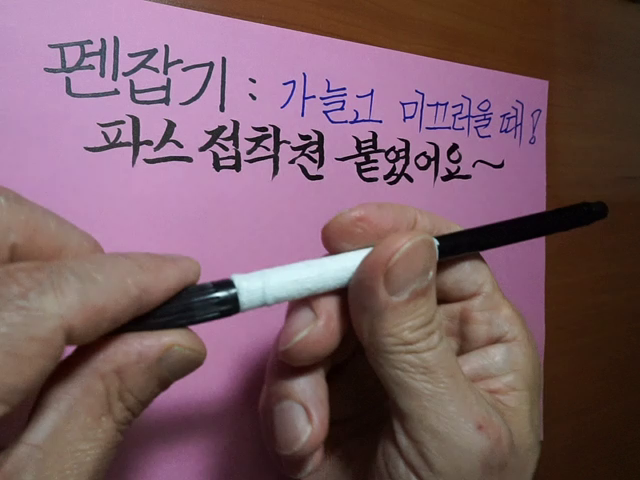 펜잡기 : 가늘고 미끄러울 때!
파스 접착천 붙였어요~